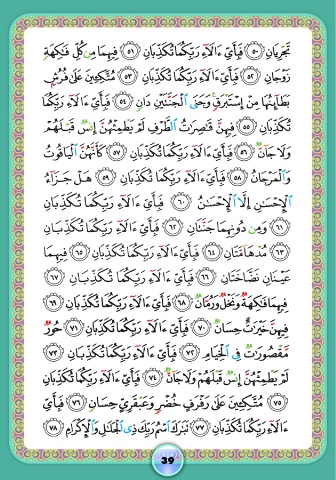 تَجْرِيَانِ ﴿٥٠﴾ فَبِأَيِّ ءَالَآءِ رَبِّكُمَا تُكَذِّبَانِ ﴿٥١﴾ فِيهِمَا مِن كُلِّ فَٰكِهَةٍ
زَوْجَانِ ﴿٥٢﴾ فَبِأَيِّ ءَالَآءِ رَبِّكُمَا تُكَذِّبَانِ ﴿٥٣﴾ مُتَّكِـِٔينَ عَلَىٰ فُرُشٍۭ
بَطَآئِنُهَا مِنْ إِسْتَبْرَقٍ ۚ وَجَنَى ٱلْجَنَّتَيْنِ دَانٍ ﴿٥٤﴾ فَبِأَيِّ ءَالَآءِ رَبِّكُمَا
تُكَذِّبَانِ ﴿٥٥﴾ فِيهِنَّ قَٰصِرَٰتُ ٱلطَّرْفِ لَمْ يَطْمِثْهُنَّ إِنسٌ قَبْلَهُمْ
وَلَا جَآنٌّ ﴿٥٦﴾ فَبِأَيِّ ءَالَآءِ رَبِّكُمَا تُكَذِّبَانِ ﴿٥٧﴾ كَأَنَّهُنَّ ٱلْيَاقُوتُ
وَٱلْمَرْجَانُ ﴿٥٨﴾ فَبِأَيِّ ءَالَآءِ رَبِّكُمَا تُكَذِّبَانِ ﴿٥٩﴾ هَلْ جَزَآءُ
ٱلْإِحْسَٰنِ إِلَّا ٱلْإِحْسَٰنُ ﴿٦٠﴾ فَبِأَيِّ ءَالَآءِ رَبِّكُمَا تُكَذِّبَانِ
﴿٦١﴾ وَمِن دُونِهِمَا جَنَّتَانِ ﴿٦٢﴾ فَبِأَيِّ ءَالَآءِ رَبِّكُمَا تُكَذِّبَانِ
﴿٦٣﴾ مُدْهَآمَّتَانِ ﴿٦٤﴾ فَبِأَيِّ ءَالَآءِ رَبِّكُمَا تُكَذِّبَانِ ﴿٦٥﴾ فِيهِمَا
عَيْنَانِ نَضَّاخَتَانِ ﴿٦٦﴾ فَبِأَيِّ ءَالَآءِ رَبِّكُمَا تُكَذِّبَانِ ﴿٦٧﴾
فِيهِمَا فَٰكِهَةٌ وَنَخْلٌ وَرُمَّانٌ ﴿٦٨﴾ فَبِأَيِّ ءَالَآءِ رَبِّكُمَا تُكَذِّبَانِ ﴿٦٩﴾
فِيهِنَّ خَيْرَٰتٌ حِسَانٌ ﴿٧٠﴾ فَبِأَيِّ ءَالَآءِ رَبِّكُمَا تُكَذِّبَانِ ﴿٧١﴾ حُورٌ
مَّقْصُورَٰتٌ فِى ٱلْخِيَامِ ﴿٧٢﴾ فَبِأَيِّ ءَالَآءِ رَبِّكُمَا تُكَذِّبَانِ ﴿٧٣﴾
لَمْ يَطْمِثْهُنَّ إِنسٌ قَبْلَهُمْ وَلَا جَآنٌّ ﴿٧٤﴾ فَبِأَيِّ ءَالَآءِ رَبِّكُمَا تُكَذِّبَانِ
﴿٧٥﴾ مُتَّكِـِٔينَ عَلَىٰ رَفْرَفٍ خُضْرٍ وَعَبْقَرِىٍّ حِسَانٍ ﴿٧٦﴾ فَبِأَيِّ
ءَالَآءِ رَبِّكُمَا تُكَذِّبَانِ ﴿٧٧﴾ تَبَٰرَكَ ٱسْمُ رَبِّكَ ذِى ٱلْجَلَٰلِ وَٱلْإِكْرَامِ ﴿٧٨﴾
39